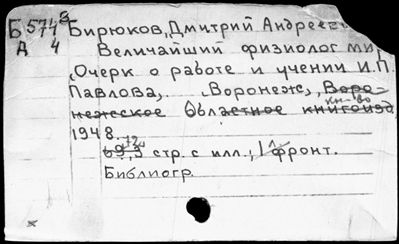 Б 5748 Бирюков, Дмитрий Андреев
Д 4 Величайший физиолог мир
(Очерк о работе и учении И.П.
Павлова, Воронеж, Воро-
нежское Областное книгоизд
кн-во
1948.
69,3 стр. с илл., 1 л. фронт.
Библиогр.